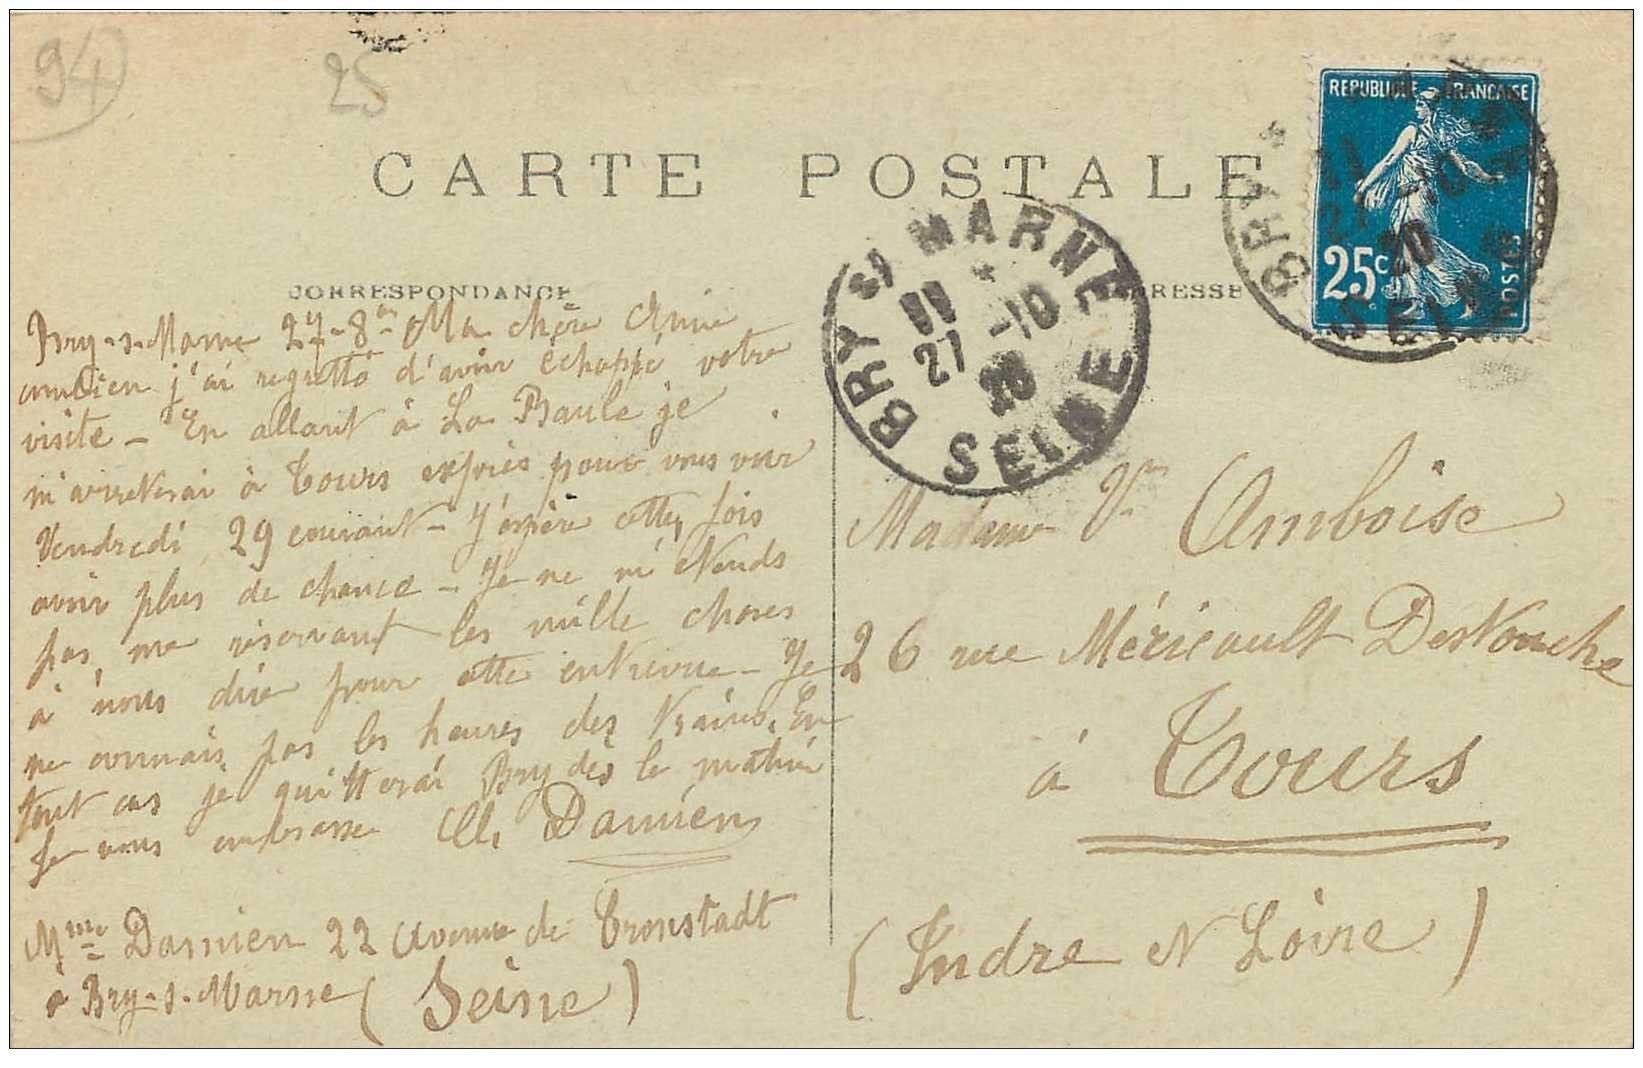 94
25
CARTE POSTALE
CORRESPONDANCE
RESSE
REPUBLIQUE FRANCAISE
25c
POSTES
BRY
SEINE
20
BRY S/ MARNE
11 *
27 -10
20
SEINE
Bry-s-Marne 27-8bre Ma chère Amie
combien j'ai regretté d'avoir échappé votre
visite - En allant à La Baule je
m'arreterai à Tours exprès pour vous voir
Vendredi 29 courant - J'espère cette fois
avoir plus de chance - Je ne m'étends
pas me réservant les mille choses
à nous dire pour cette entrevue - Je
ne connais pas les heures des trains. En
tout cas je quitterai Bry dès le matin
Je vous embrasse Damien
Mme Damien 22 Avenue de Cronstadt
à Bry-s-Marne (Seine)
Madame Ve Amboise
26 rue Méricault Destouche
à Tours
(Indre et Loire)